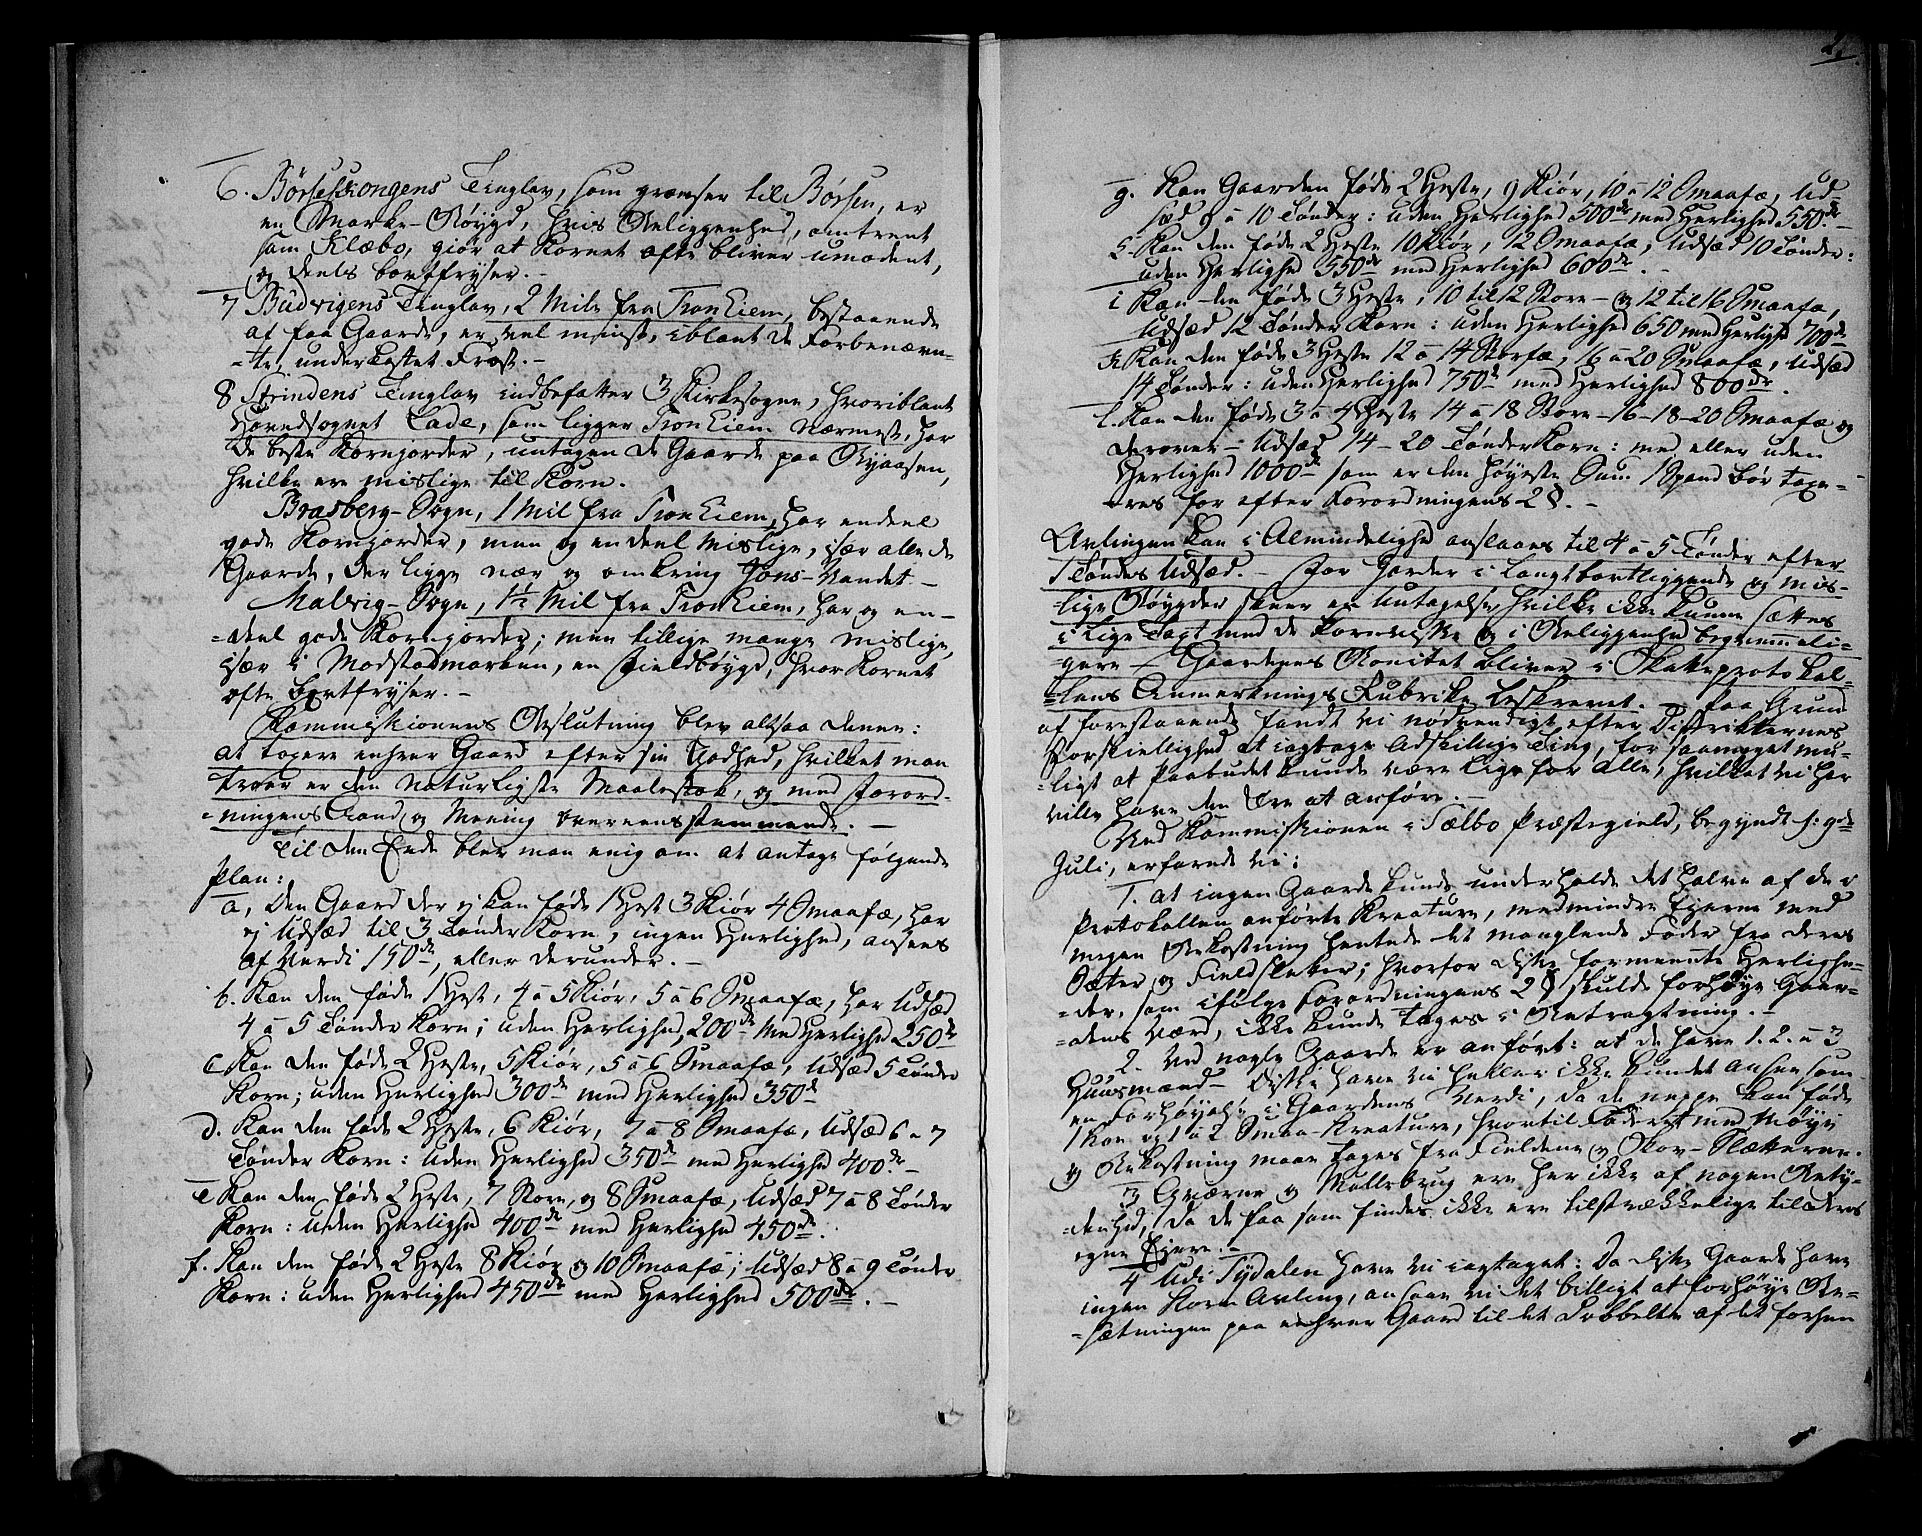 6. Børseskongens Tinglav, som grænser til Børsen, er
en Marke-Bøygd, hvis Beliggenhed, omtrent
som Klæbo, giør at Kornet ofte bliver umodent,
og deels bortfryser.-
7 Budvigens Tinglav, 2 Mile fra Tronhiem, bestaaende
af faa Gaarde, er vel minst, iblant de Forbenævn-
-te, underkastet Frost.-
8 Strindens Tinglav indbefatter 3 Kirkesogne, hvoriblant
Hovedsognet Lade, som ligger Tronhiem nærmest, har
de beste Kornjorder, untagen de Gaarde paa Byaasen,
hvilke ere mislige til Korn.
Bratsberg-Sogn, 1 Mil fra Tronhiem, har endeel
gode Kornjorder, men og en deel mislige, især alle de
Gaarde, der ligge nær og omkring Jons-Vandet-
Malvig-Sogn, 1½ Mil fra Tronhiem, har og en-
-deel gode Kornjorder; men tillige mange mislige,
især i Mostadmarken, en Fieldbøygd, hvor Kornet
ofte bortfryser.-
Kommissionens Beslutning blev altsaa denne:
at taxere enhver Gaard efter sin Godhed, hvilket man
troer er den naturligste Maalestok, og med Forord-
-ningens Aand og Mening overeensstemmende.-
Til den Ende blev man enig om at antage følgende
Plan:
a, Den Gaard der ej kan føde 1 Hest 3 Kiør 4 Smaafæ, har
ej Udsæd til 3 Tønder Korn, ingen Herlighed, ansees
af Verdi 150 dr, eller derunder.-
b. Kan den føde 1 Hest, 4 a 5 Kiør, 5 a 6 Smaafæ, har Udsæd
4 a 5 Tønder Korn; uden Herlighed, 200 dr med Herlighed 250 dr
c Kan den føde 2 Heste, 5 Kiør, 5 a 6 Smaafæ, Udsæd 5 Tønder
Korn; uden Herlighed 300 dr med Herlighed 350 dr
d. Kan den føde 2 Heste, 6 Kiør, 7 a 8 Smaafæ, Udsæd 6 a 7
Tønder Korn: uden Herlighed 350 dr med Herlighed 400 dr.-
e Kan den føde 2 Heste, 7 Store, og 8 Smaafæ, Udsæd 7 a 8 Tønder
Korn: uden Herlighed 400 dr med Herlighed 450 dr.
f. Kan den føde 2 Heste 8 Kiør og 10 Smaafæ; Udsæd 8 a 9 Tønder
Korn: uden Herlighed 450 dr med Herlighed 500 dr.-
g. Kan Gaarden føde 2 Heste, 9 Kiør, 10 a 12 Smaafæ, Ud-
sæd 9 a 10 Tønder: uden Herlighed 500 dr med Herlighed 550 dr.-
h. Kan den føde 2 Heste 10 Kiør, 12 Smaafæ, Udsæd 10 Tønder:
uden Herlighed 550 dr med Herlighed 600 dr.-
i Kan den føde 3 Heste, 10 til 12 Store- og 12 til 16 Smaafæ,
Udsæd 12 Tønder Korn: uden Herlighed 650 med Herlighd 700 dr
k Kan den føde 3 Heste 12 a 14 Storfæ, 16 a 20 Smaafæ, Udsæd
14 Tønder: uden Herlighed 750 d med Herlighed 800 dr.
l. Kan den føde 3 a 4 Heste 14 a 18 Store-16-18-20 Smaafæ og
derover- Udsæd 14-20 Tønder Korn: med eller uden
Herlighed 1000 dr som er den høyeste Sum 1 Spand bør taxe-
-res for efter Forordningens 2 §.-
Avlingen kan i Almindelighed anslaaes til 4 a 5 Tønder efter
1 Tøndes Udsæd.- For Gorder i langtbortliggende og mis-
lige Bøygder skeer en Untagelse, hvilke ikke kunne sættes
i lige Taxt med de kornviske og i Beliggenhed beqvemmeli-
-gere- Gaardenes Bonitet bliver i Skatteprotokol-
-lens Anmerknings Rubrike beskrevet.- Paa Grund
af forestaaende fandt vi nødvendigt efter Districternes
Forskiellighed at iagtage adskillige Ting, for saameget mu-
-ligt at Paabudet kunde være lige for alle, hvilket vi her
ville have den Ære at anføre.-
Ved Kommissionen i Sælbo Præstegield, begyndt d: 9de
Juli, erfarede vi:
1. at ingen Gaard kunde underholde det halve af de i
Protokollen anførte Kreature, medmindre Ejerne med
megen Bekostning hentede det manglende Foder fra deres
Sæter og Fieldslætter; hvorfor disse formeente Herlighe-
-der, som ifølge Forordningens 2 § skulde forhøye Gaar-
-dens Værd, ikke kunde tages i Betragtning.-
2. Ved nogle Gaarde er anført: at de have 1. 2. a 3
Huusmænd- Disse have vi heller ikke kundet ansee som
en Forhøyelse i Gaardens Verdi, da de neppe kan føde
1 Koe og 1 a 2 Smaa-Kreature, hvortil Foderet med Møye
og Bekostning maae tages fra Fieldene og Skov-Slætterne.
3 Qværne og Møllebrug ere her ikke af nogen Bety-
-denhed, da de faa som findes ikke ere tilstrækkelige til deres
egne Ejere.-
4 Udi Tydalen have vi iagtaget: Da disse Gaarde have
ingen Korn Avling, ansaae vi det billigt at forhøye Be-
-sætningen paa enhver Gaard til det Dobbelte af det forhen